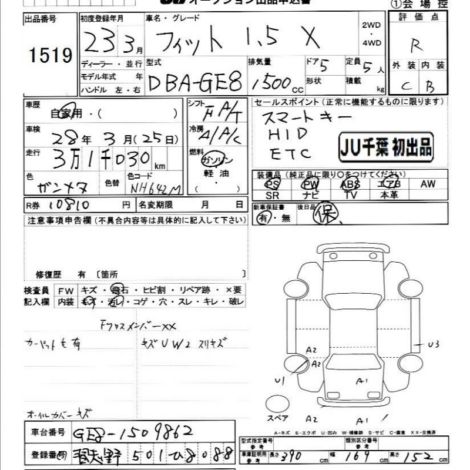 オークション出品申込書
①会場控
出品番号
1519
初度登録年月
23 3月
車名・グレード
フィット 1.5 X
2WD
・
4WD
評価点
R
ディーラー・並行
モデル年式 年
ハンドル 左・右
型式
DBA-GE8
排気量
1500 cc
ドア 5
形状
定員 5人
積載
kg
外装 内装
C B
車歴
自家用・( )
車検
28年 3月(25日)
走行
3万1千030 km
色 ガンメタ
色替
カラーNo.
NH642M
シフト
F A/T
冷房
A/A/C
燃料
ガソリン
軽油
・
( )
セールスポイント(正常に機能するものに限ります)
スマートキー
HID
ETC
JU千葉 初出品
装備品(純正品に限り○をつけてください)
PS PW ABS エアB AW
SR ナビ TV 本革
R券 10810 円
名変期限 月 日
新車保証書
有・無
保
注意事項申告欄(不具合内容等は具体的に記入して下さい)
修復歴 有〔箇所 〕
検査員
記入欄
FW キズ・飛石・ヒビ割・リペア跡・×要
内装 キズ・汚レ・コゲ・穴・スレ・キレ・破レ
FクロスメンバーXX
キズUW2スリキズ
オイルカバーキズ
A2
A2
U3
U1
A2
A1
A1
スペア
車台番号
GE8-1509862
登録番号
習志野 501 ひ8088
型式指定番号
類別区分番号
車両説明
長さ 390 cm
幅 169 cm
高さ 152 cm